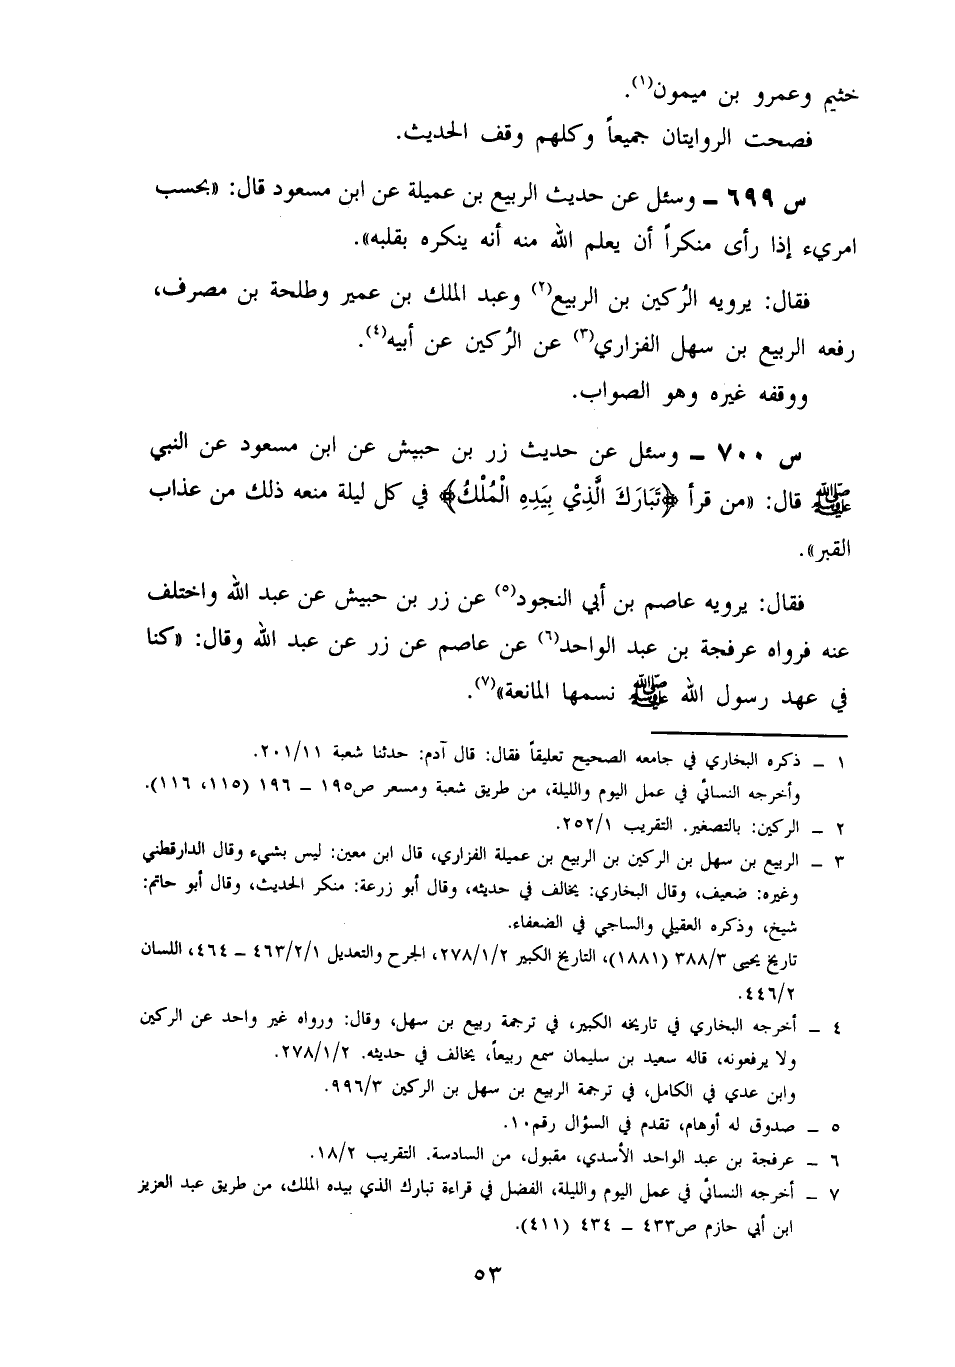 خثيم وعمرو بن ميمون(١).
فصحت الروايتان جميعاً وكلهم وقف الحديث.
س ٦٩٩ ـ وسئل عن حديث الربيع بن عميلة عن ابن مسعود قال: «بحسب
امريء إذا رأى منكراً أن يعلم الله منه أنه ينكره بقلبه».
فقال: يرويه الرُكين بن الربيع(٢) وعبد الملك بن عمير وطلحة بن مصرف،
رفعه الربيع بن سهل الفزاري(٣) عن الرُكين عن أبيه(٤).
ووقفه غيره وهو الصواب.
س ٧٠٠ ـ وسئل عن حديث زر بن حبيش عن ابن مسعود عن النبي
ﷺ قال: «من قرأ ﴿تَبَارَكَ الَّذِيْ بِيَدِهِ الْمُلْكُ﴾ في كل ليلة منعه ذلك من عذاب
القبر».
فقال: يرويه عاصم بن أبي النجود(٥) عن زر بن حبيش عن عبد الله واختلف
عنه فرواه عرفجة بن عبد الواحد(٦) عن عاصم عن زر عن عبد الله وقال: «كنا
في عهد رسول الله ﷺ نسمها المانعة»(٧).
١ ـ ذكره البخاري في جامعه الصحيح تعليقاً فقال: قال آدم: حدثنا شعبة ٢٠١/١١.
وأخرجه النسائي في عمل اليوم والليلة، من طريق شعبة ومسعر ص١٩٥ ـ ١٩٦ (١١٥، ١١٦).
٢ ـ الركين: بالتصغير. التقريب ٢٥٢/١.
٣ ـ الربيع بن سهل بن الركين بن الربيع بن عميلة الفزاري، قال ابن معين: ليس بشيء وقال الدارقطني
وغيره: ضعيف، وقال البخاري: يخالف في حديثه، وقال أبو زرعة: منكر الحديث، وقال أبو حاتم:
شيخ، وذكره العقيلي والساجي في الضعفاء.
تاريخ يحيى ٣٨٨/٣ (١٨٨١)، التاريخ الكبير ٢٧٨/١/٢، الجرح والتعديل ٤٦٣/٢/١ ـ ٤٦٤، اللسان
٤٤٦/٢.
٤ ـ أخرجه البخاري في تاريخه الكبير، في ترجمة ربيع بن سهل، وقال: ورواه غير واحد عن الركين
ولا يرفعونه، قاله سعيد بن سليمان سمع ربيعاً، يخالف في حديثه. ٢٧٨/١/٢.
وابن عدي في الكامل، في ترجمة الربيع بن سهل بن الركين ٩٩٦/٣.
٥ ـ صدوق له أوهام، تقدم في السؤال رقم١٠.
٦ ـ عرفجة بن عبد الواحد الأسدي، مقبول، من السادسة. التقريب ١٨/٢.
٧ ـ أخرجه النسائي في عمل اليوم والليلة، الفضل في قراءة تبارك الذي بيده الملك، من طريق عبد العزيز
ابن أبي حازم ص٤٣٣ ـ ٤٣٤ (٤١١).
٥٣